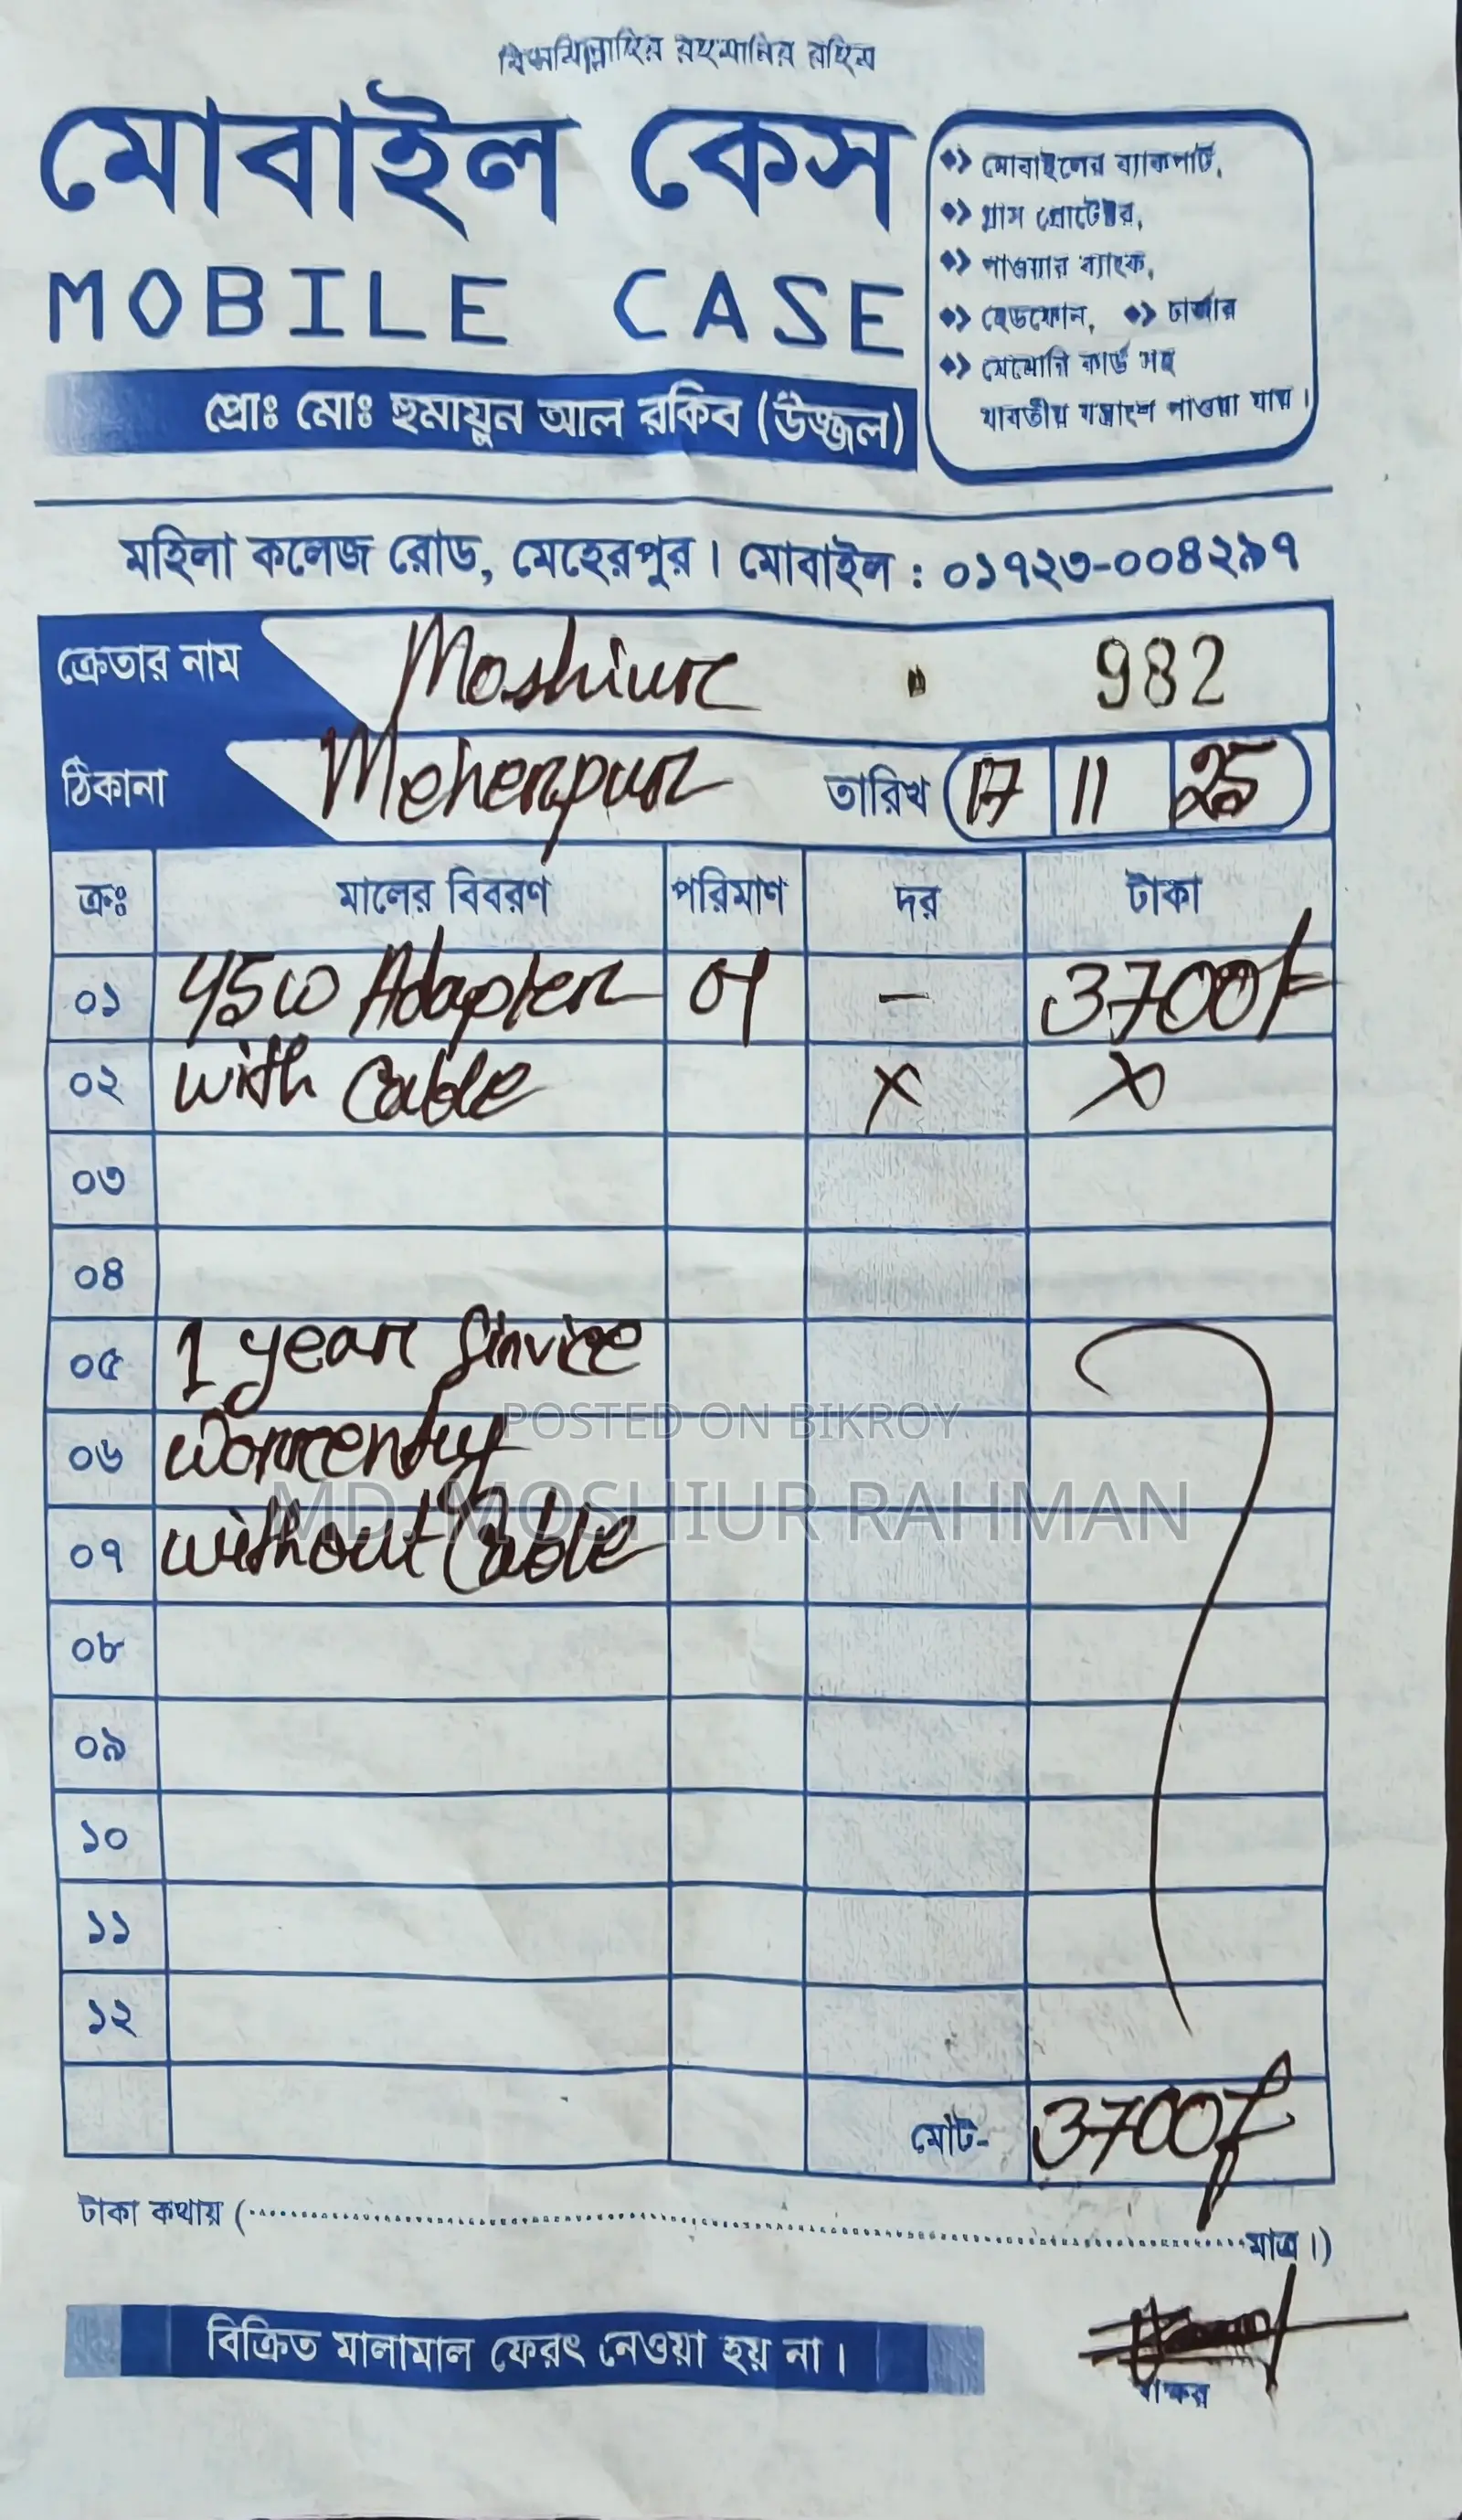 বিসমিল্লাহির রহমানির রহিম
মোবাইল কেস
MOBILE CASE
প্রোঃ মোঃ হুমায়ুন আল রকিব (উজ্জল)
মোবাইলের ব্যাকপার্ট,
গ্লাস প্রোটেক্টর,
পাওয়ার ব্যাংক,
হেডফোন, চার্জার
মেমোরি কার্ড সহ
যাবতীয় যন্ত্রাংশ পাওয়া যায়।
মহিলা কলেজ রোড, মেহেরপুর। মোবাইল : ০১৭২৩-০০৪২৯৭
ক্রেতার নাম Moshiur 982
ঠিকানা Meherpur তারিখ 17 11 25
ক্রঃ মালের বিবরণ পরিমাণ দর টাকা
০১ 45W Adapter 01 - 3700/=
০২ with Cable x x
০৩
০৪
০৫ 1 year Service
০৬ Worrenty
POSTED ON BIKROY
MD. MOSHIUR RAHMAN
০৭ without Cable
০৮
০৯
১০
১১
১২
মোট- 3700/
টাকা কথায় (.......... মাত্র।)
বিক্রিত মালামাল ফেরৎ নেওয়া হয় না।
স্বাক্ষর